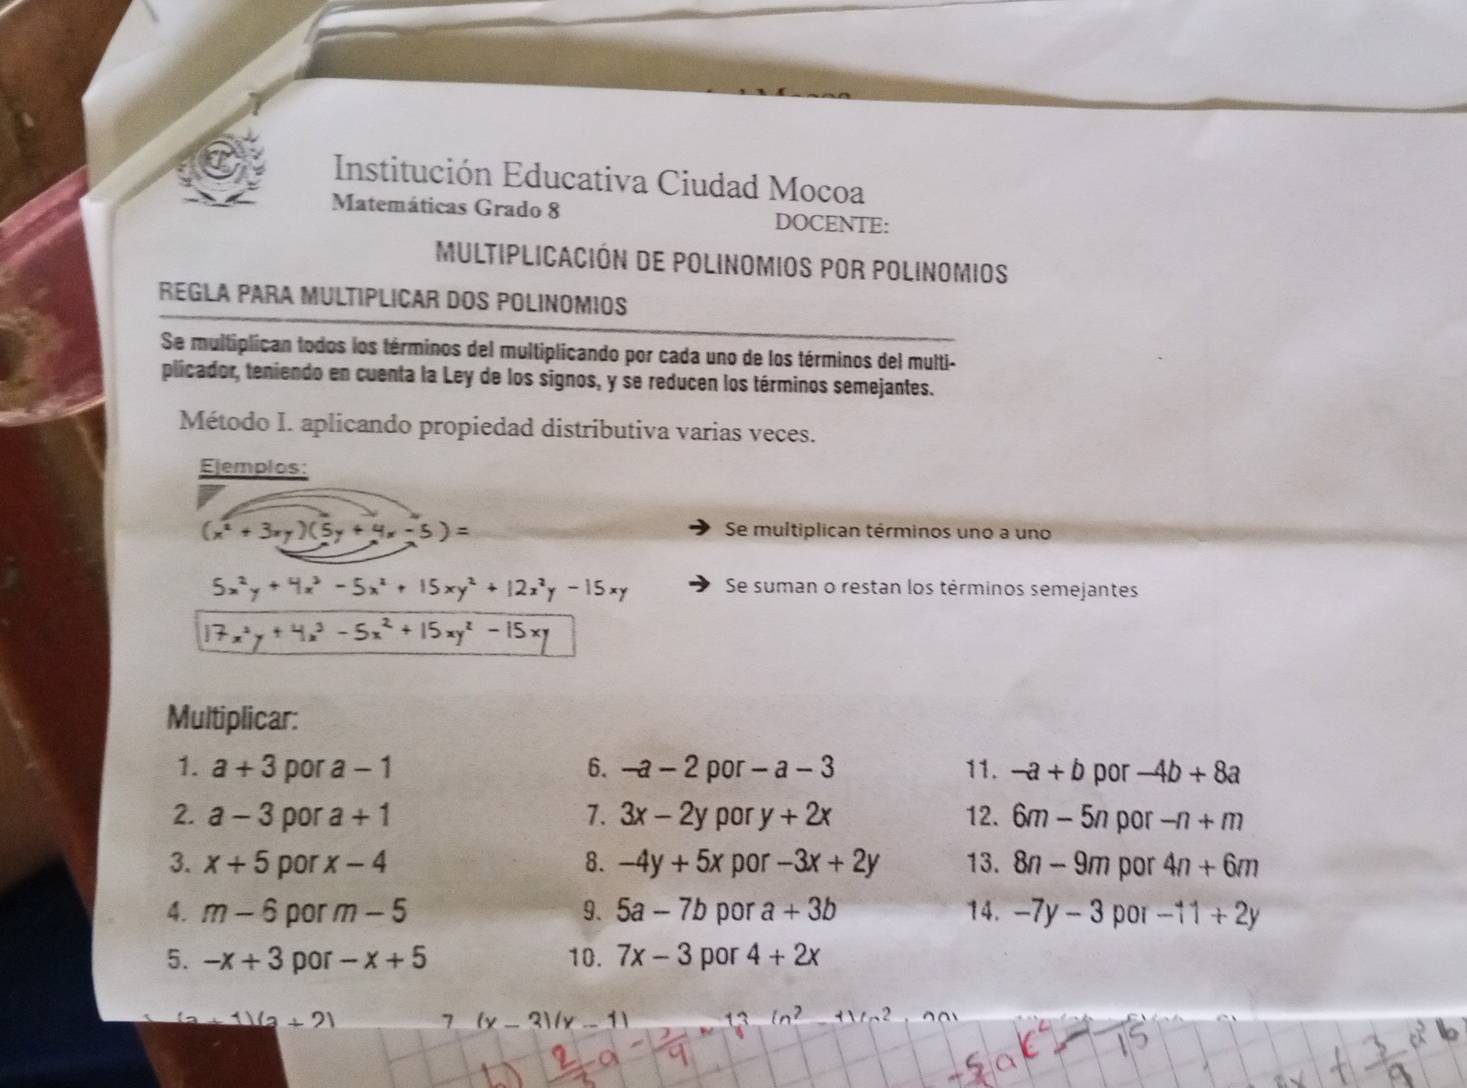 Institución Educativa Ciudad Mocoa
Matemáticas Grado 8
DOCENTE:
MULTIPLICACIÓN DE POLINOMIOS POR POLINOMIOS
REGLA PARA MULTIPLICAR DOS POLINOMIOS
Se multiplican todos los términos del multiplicando por cada uno de los términos del multi-
plicador, teniendo en cuenta la Ley de los signos, y se reducen los términos semejantes.
Método I. aplicando propiedad distributiva varias veces.
Ejemplos:
(x² + 3xy)(5y + 4x - 5) = → Se multiplican términos uno a uno
5x²y + 4x³ - 5x² + 15xy² + 12x²y - 15xy → Se suman o restan los términos semejantes
17x²y + 4x³ - 5x² + 15xy² - 15xy
Multiplicar:
1. a + 3 por a – 1
2. a – 3 por a + 1
3. x + 5 por x – 4
4. m – 6 por m – 5
5. –x + 3 por – x + 5
6. –a – 2 por – a – 3
7. 3x – 2y por y + 2x
8. –4y + 5x por –3x + 2y
9. 5a – 7b por a + 3b
10. 7x – 3 por 4 + 2x
11. –a + b por –4b + 8a
12. 6m – 5n por –n + m
13. 8n – 9m por 4n + 6m
14. –7y – 3 por –11 + 2y